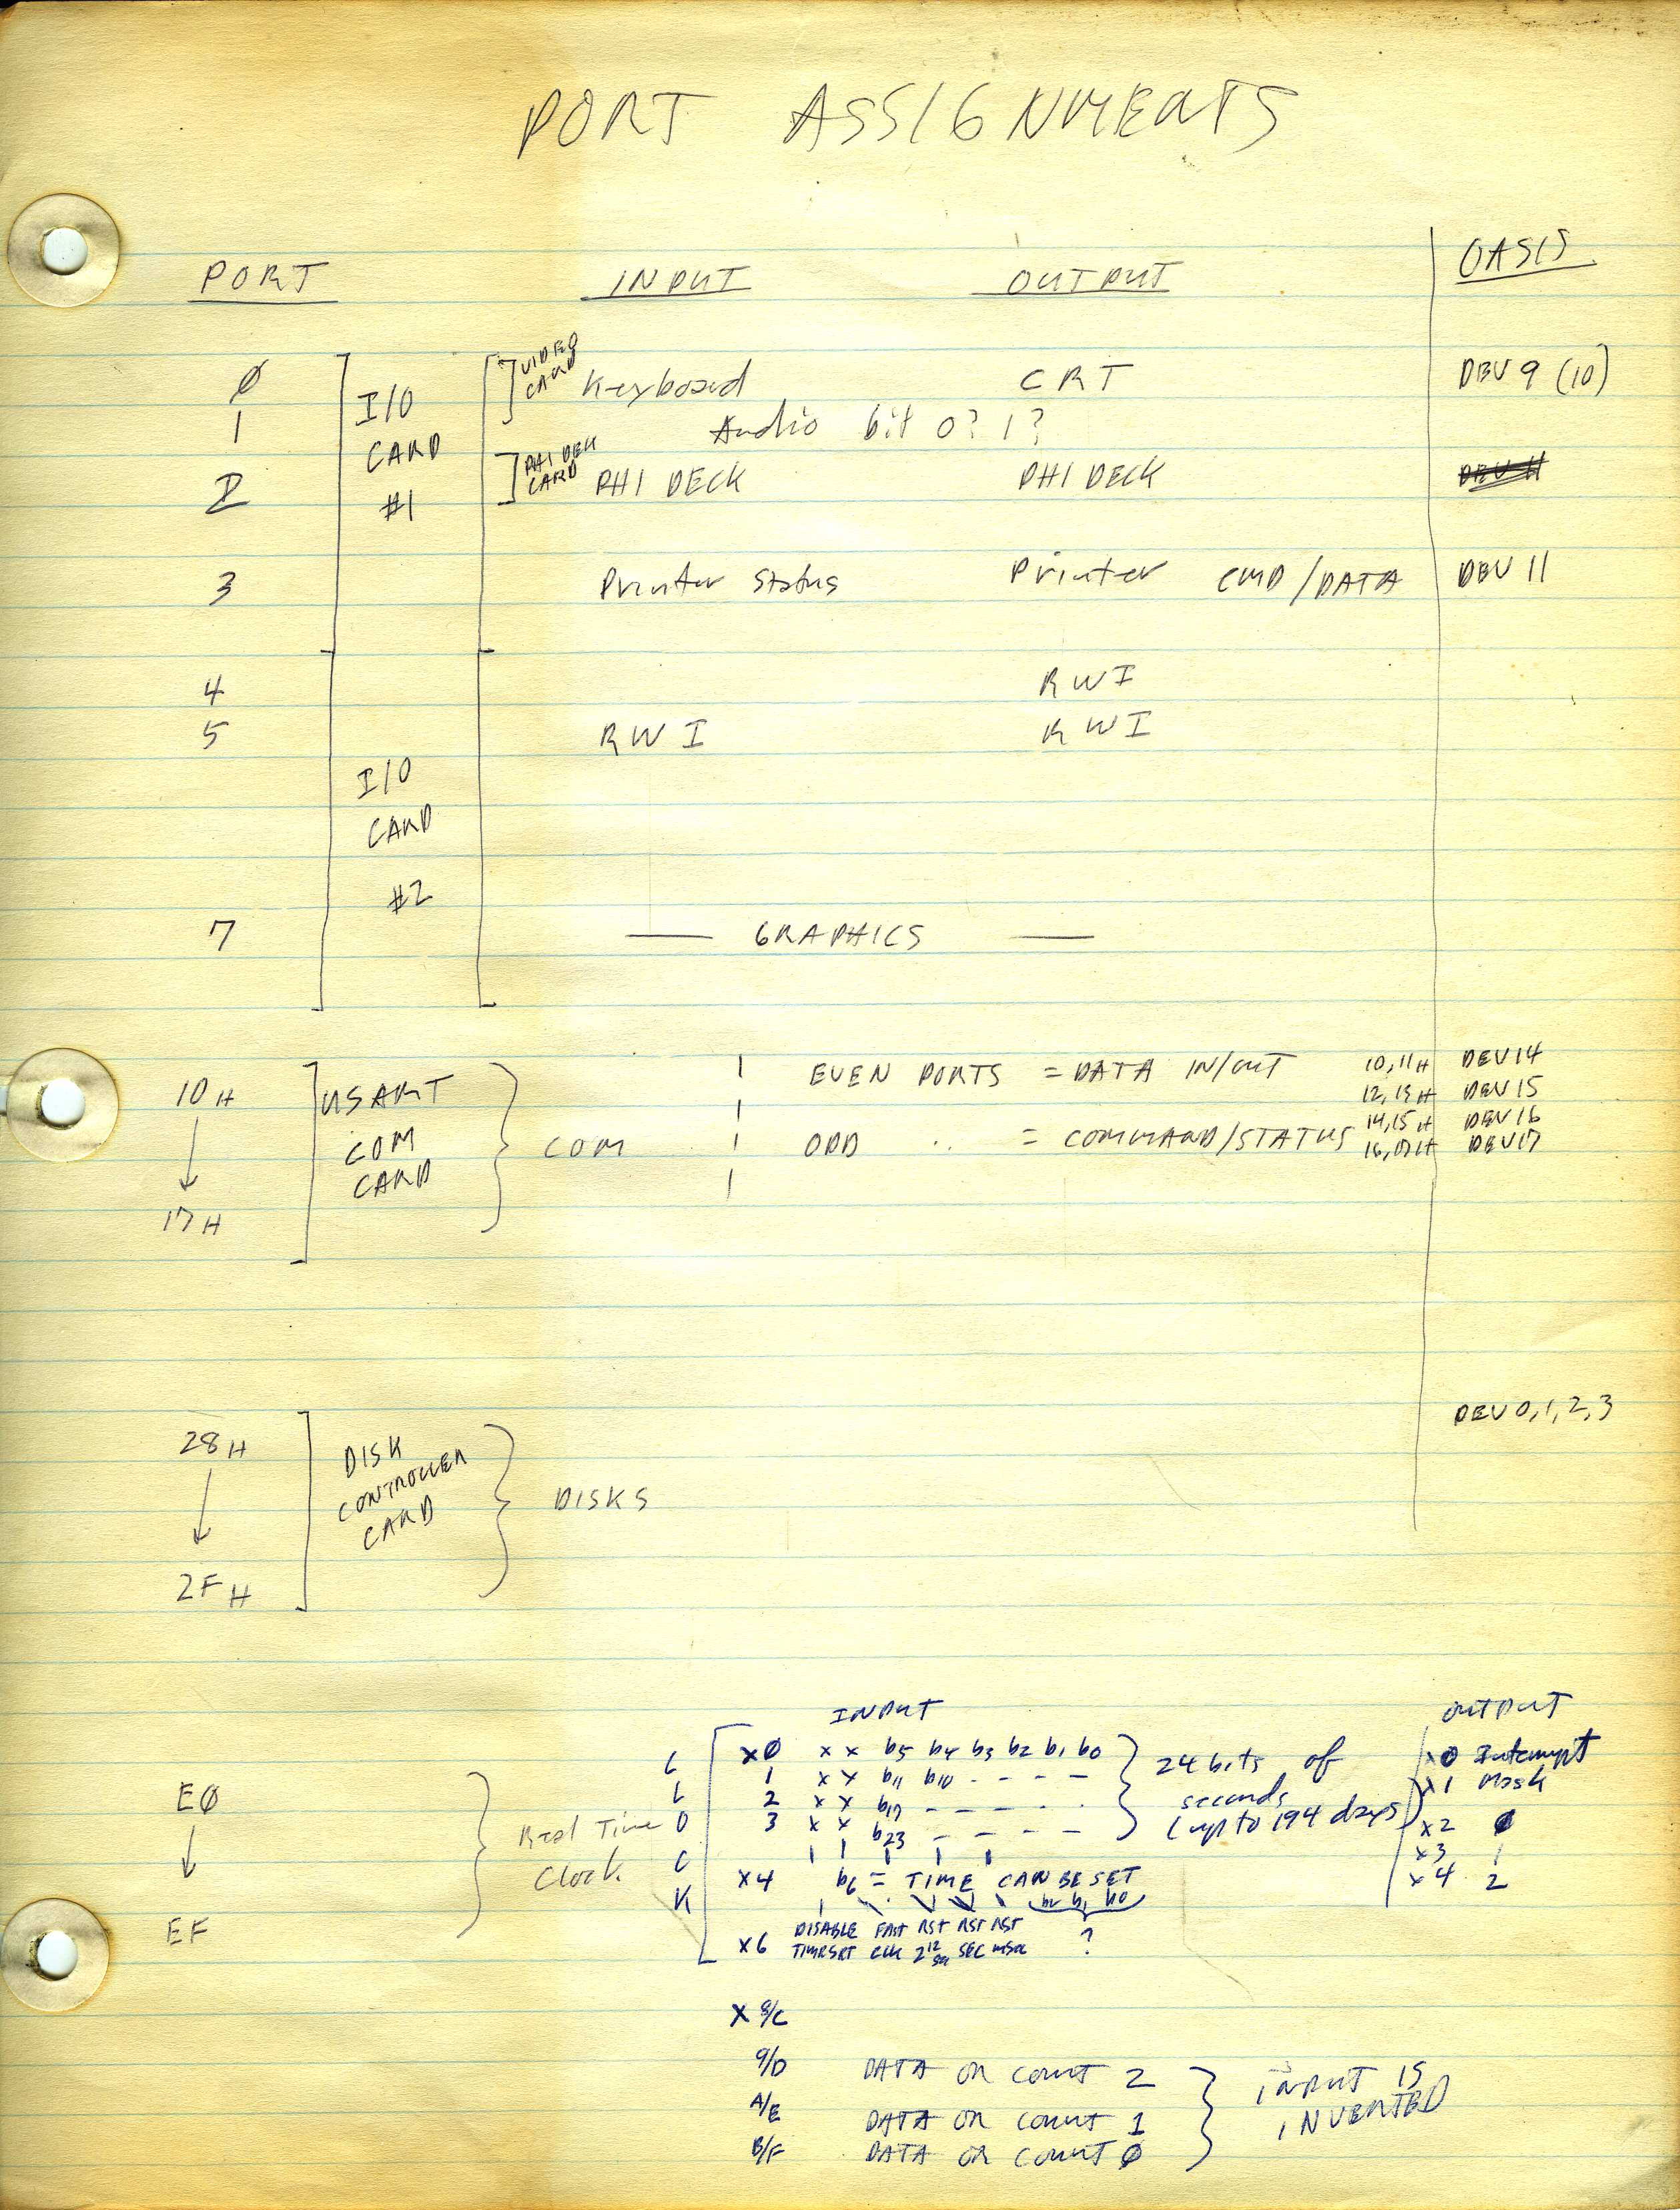 PORT ASSIGNMENTS
PORT INPUT OUTPUT OASIS
Ø I/O VIDEO CARD Keyboard CRT DEV 9 (10)
1 CARD Audio bit 0? 1?
2 #1 PHI DECK CARD PHI DECK PHI DECK
3 Printer Status Printer CMD/DATA DEV 11
4 RWI
5 RWI RWI
I/O
CARD
#2
7 — GRAPHICS —
10H USART EVEN PORTS = DATA IN/OUT 10,11H DEV14
12,13H DEV15
COM COM ODD " = COMMAND/STATUS 14,15H DEV16
CARD 16,17H DEV17
17H
DEV 0,1,2,3
28H DISK
CONTROLLER DISKS
CARD
2FH
INPUT OUTPUT
C xØ x x b5 b4 b3 b2 b1 b0 24 bits of x0 Interrupt
EØ L 1 x x b11 b10 - - - - seconds x1 Mask
Real Time O 2 x x b17 - - - - - (up to 194 days) x2 Ø
3 x x b23 - - - - x3 1
Clock C x4 b6 = TIME CAN BE SET x4 2
K b2 b1 b0
EF DISABLE FAST RST RST RST ?
x6 TIMRSRT CLK 2^12 SEC SEC mSec
X 8/C
9/D DATA OR COUNT 2 INPUT IS
A/E DATA OR COUNT 1 INVERTED
B/F DATA OR COUNT Ø